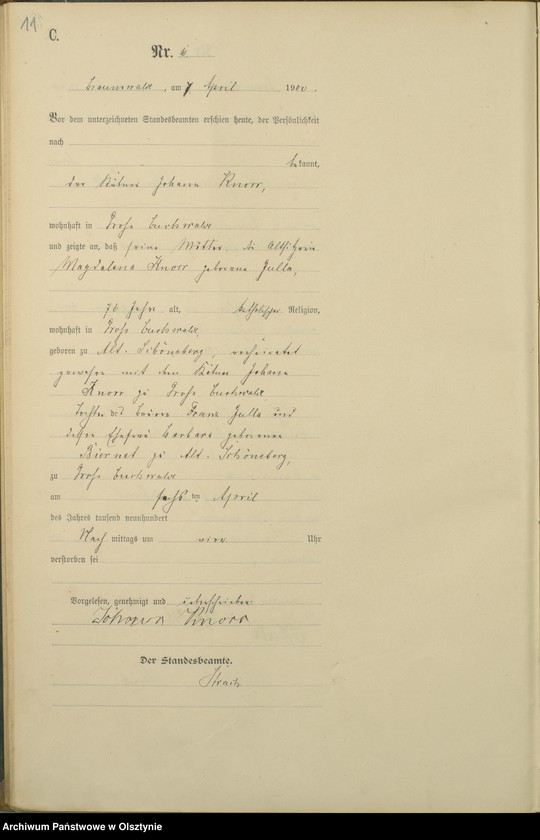 11
C.
Nr. 6
Braunswalde, am 7 April 1900.
Vor dem unterzeichneten Standesbeamten erschien heute, der Persönlichkeit
nach
bekannt,
der Käthner Johann Knorr,
wohnhaft in Groß Buchwalde
und zeigte an, daß seine Mutter, die Altsitzerin
Magdalena Knorr geborene Julla,
76 Jahr alt, katholischer Religion,
wohnhaft in Groß Buchwalde
geboren zu Alt-Schöneberg, verheiratet
gewesen mit dem Käthner Johann
Knorr zu Groß Buchwalde
Tochter des Bauern Franz Julla und
dessen Ehefrau Barbara geborenen
Biernat zu Alt-Schöneberg,
zu Groß Buchwalde
am sechs ten April
des Jahres tausend neunhundert
Nach mittags um vier Uhr
verstorben sei
Vorgelesen, genehmigt und unterschrieben
Johann Knorr
Der Standesbeamte.
Archiwum Państwowe w Olsztynie